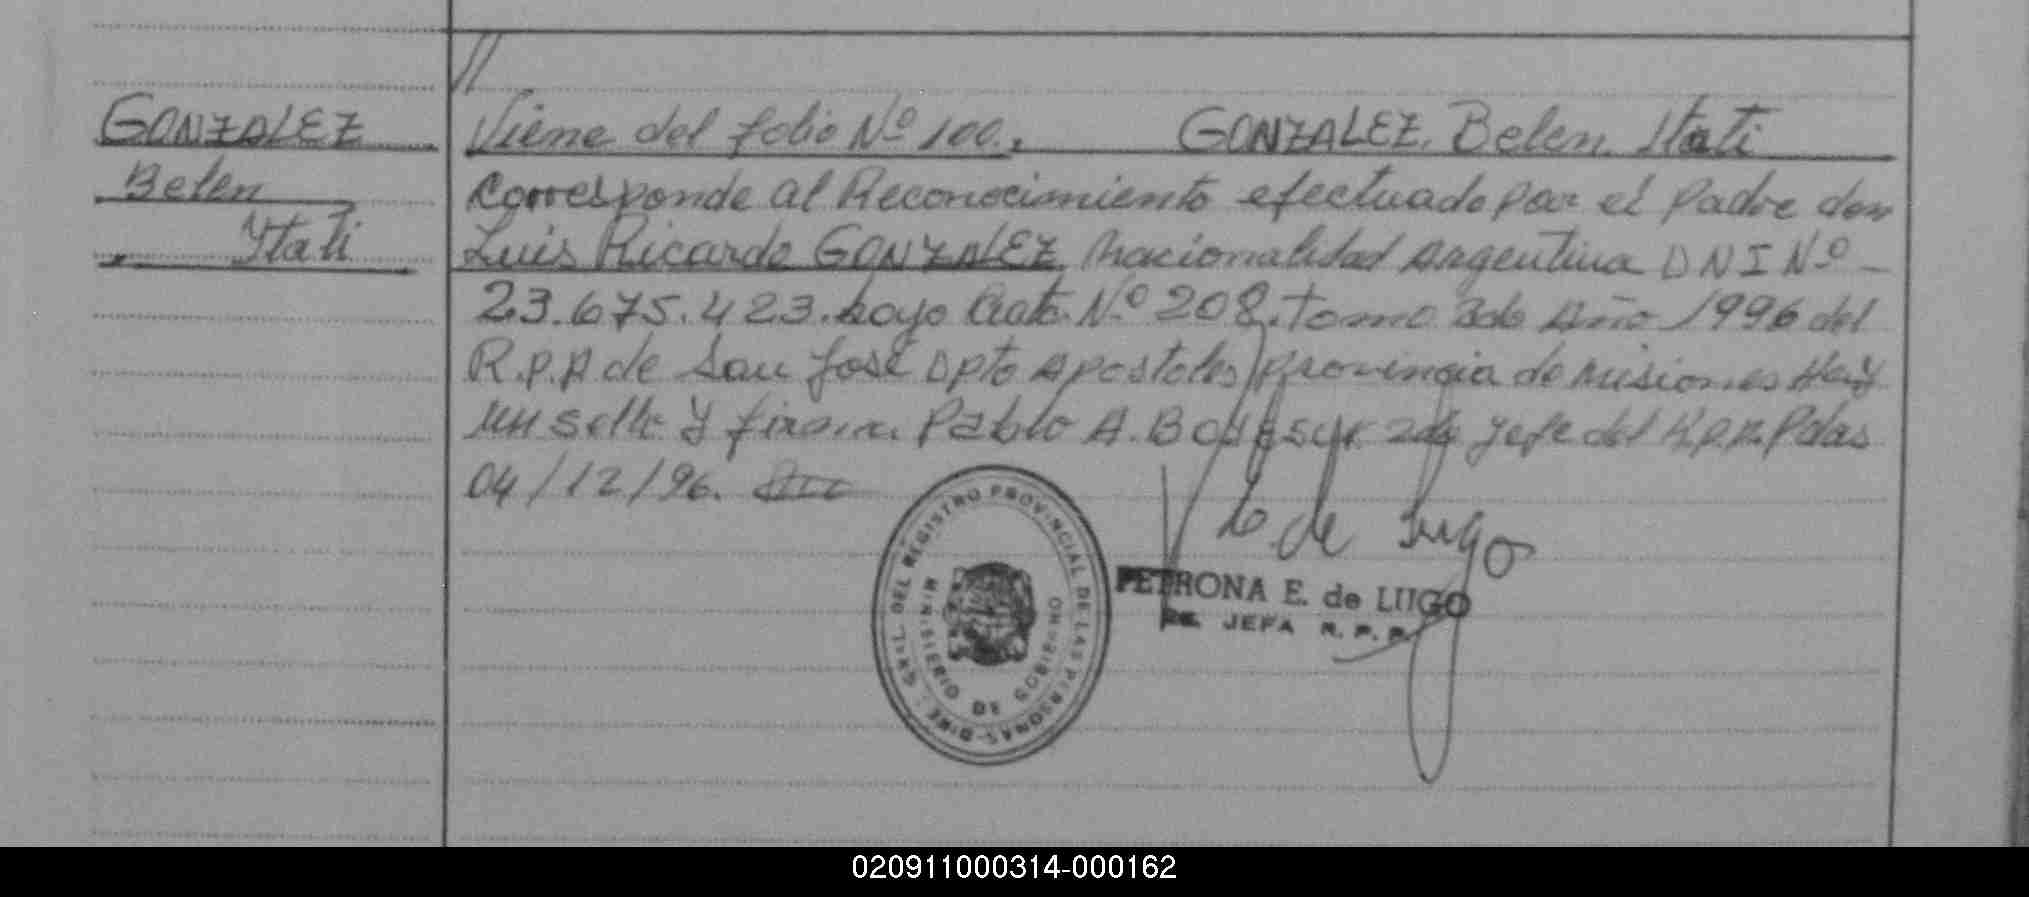 //
GONZALEZ
Belen
Itati
Viene del folio Nº 100., GONZALEZ, Belen Itati
Corresponde al Reconocimiento efectuado por el padre don
Luis Ricardo GONZALEZ, Nacionalidad Argentina DNI Nº -
23.675.423. bajo Acta Nº 208. tomo 2do Año 1996 del
R.P.P de San José Dpto Apostoles, provincia de Misiones Hay
un sello y firma. Pablo A. 2do jefe del R.P.P. Pdas
04/12/96.
DIRE. GRAL. DEL REGISTRO PROVINCIAL DE LAS PERSONAS
MINISTERIO DE GOBIERNO
de Lugo
PETRONA E. de LUGO
JEFA R. P. P.
020911000314-000162